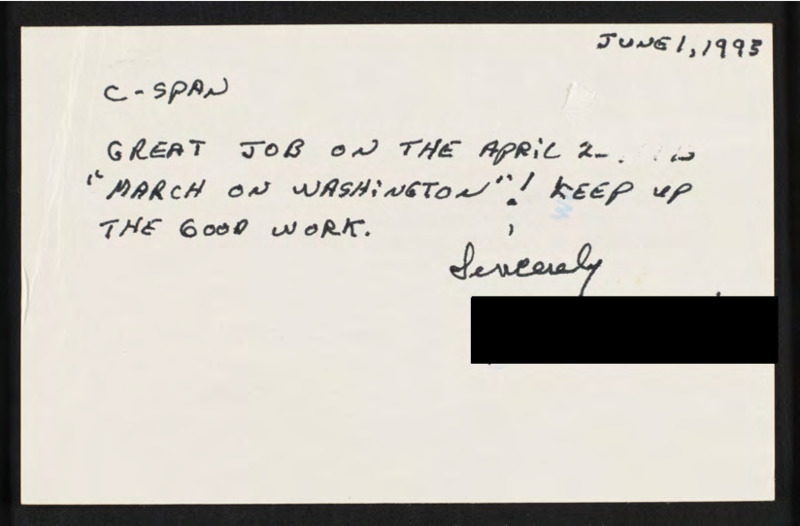 JUNE 1, 1993
C-SPAN
GREAT JOB ON THE APRIL
"MARCH ON WASHINGTON"! KEEP UP
THE GOOD WORK.
Sincerely